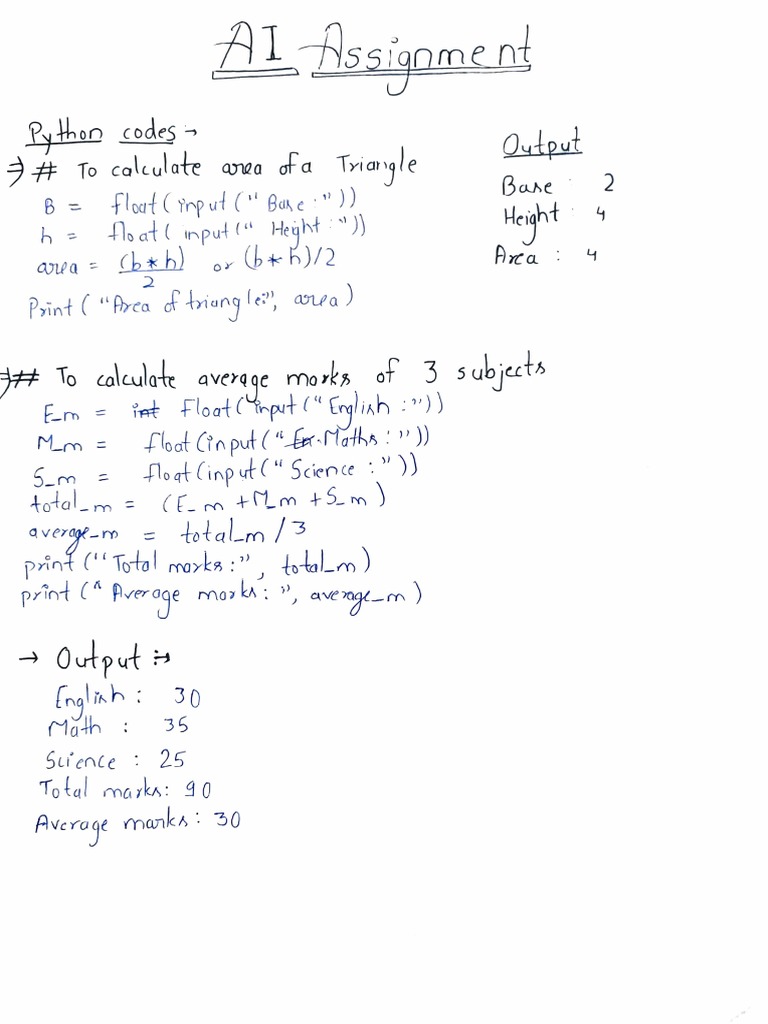 AI Assignment
Python codes →
⇒ # To calculate area of a Triangle
B = float(input("Base:"))
h = float(input("Height:"))
area = (b*h)/2 or (b*h)/2
Print("Area of triangle:", area)
Output
Base : 2
Height : 4
Area : 4
⇒ # To calculate average marks of 3 subjects
E_m = int float(input("English:"))
M_m = float(input("En.Maths:"))
S_m = float(input("Science:"))
total_m = (E_m+M_m+S_m)
average_m = total_m/3
print("Total marks:", total_m)
print("Average marks:", average_m)
→ Output :→
English : 30
Math : 35
Science : 25
Total marks: 90
Average marks: 30